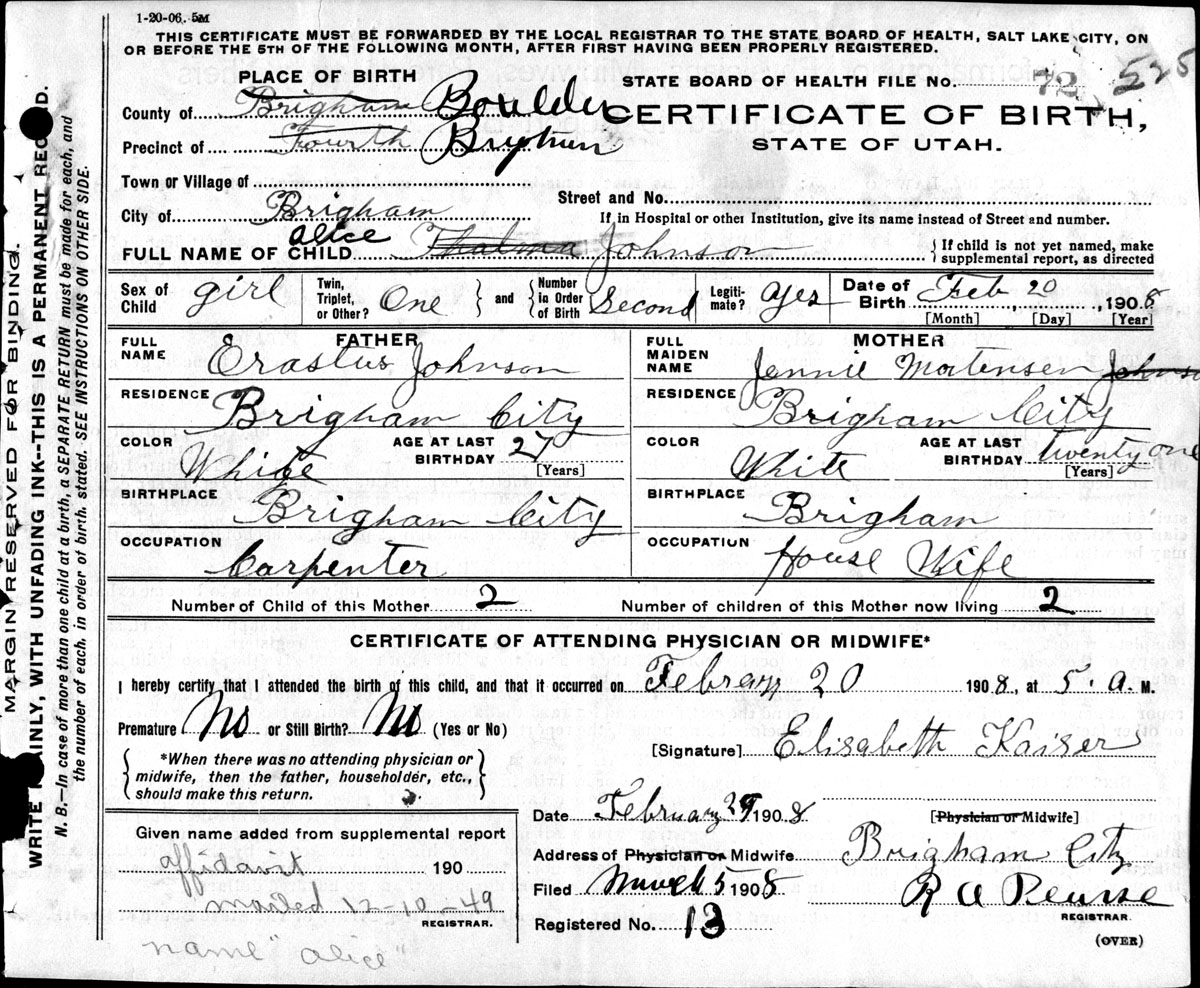 1-20-06. 5M
THIS CERTIFICATE MUST BE FORWARDED BY THE LOCAL REGISTRAR TO THE STATE BOARD OF HEALTH, SALT LAKE CITY, ON
OR BEFORE THE 5TH OF THE FOLLOWING MONTH, AFTER FIRST HAVING BEEN PROPERLY REGISTERED.
PLACE OF BIRTH
STATE BOARD OF HEALTH FILE No. 72 525
County of Brigham
CERTIFICATE OF BIRTH,
Precinct of Fourth
STATE OF UTAH.
Town or Village of
Street and No.
City of Brigham
If in Hospital or other Institution, give its name instead of Street and number.
Alice
FULL NAME OF CHILD Thalma Johnson
If child is not yet named, make
supplemental report, as directed
Sex of
Child girl
Twin,
Triplet,
or Other? One
and
Number
in Order
of Birth Second
Legiti-
mate? yes
Date of
Birth Feb 20, 1908
[Month] [Day] [Year]
FATHER
FULL
NAME Erastus Johnson
RESIDENCE Brigham City
COLOR White
AGE AT LAST
BIRTHDAY 27
[Years]
BIRTHPLACE Brigham City
OCCUPATION Carpenter
MOTHER
FULL
MAIDEN
NAME Jennie Mortensen
RESIDENCE Brigham City
COLOR White
AGE AT LAST
BIRTHDAY twenty one
[Years]
BIRTHPLACE Brigham
OCCUPATION House Wife
Number of Child of this Mother 2
Number of children of this Mother now living 2
CERTIFICATE OF ATTENDING PHYSICIAN OR MIDWIFE*
I hereby certify that I attended the birth of this child, and that it occurred on February 20 1908, at 5. a. M.
Premature No or Still Birth? No (Yes or No)
[Signature] Elisabeth Kaiser
*When there was no attending physician or
midwife, then the father, householder, etc.,
should make this return.
Date February 1908
[Physician or Midwife]
Given name added from supplemental report
affidavit 190
mailed 12-10-49
REGISTRAR.
name "alice"
Address of Physician or Midwife Brigham City
Filed March 5 1908
R A Pearse
REGISTRAR.
Registered No. 13
(OVER)
MARGIN RESERVED FOR BINDING.
WRITE PLAINLY, WITH UNFADING INK--THIS IS A PERMANENT RECORD.
N. B.—In case of more than one child at a birth, a SEPARATE RETURN must be made for each, and
the number of each, in order of birth, stated. SEE INSTRUCTIONS ON OTHER SIDE.